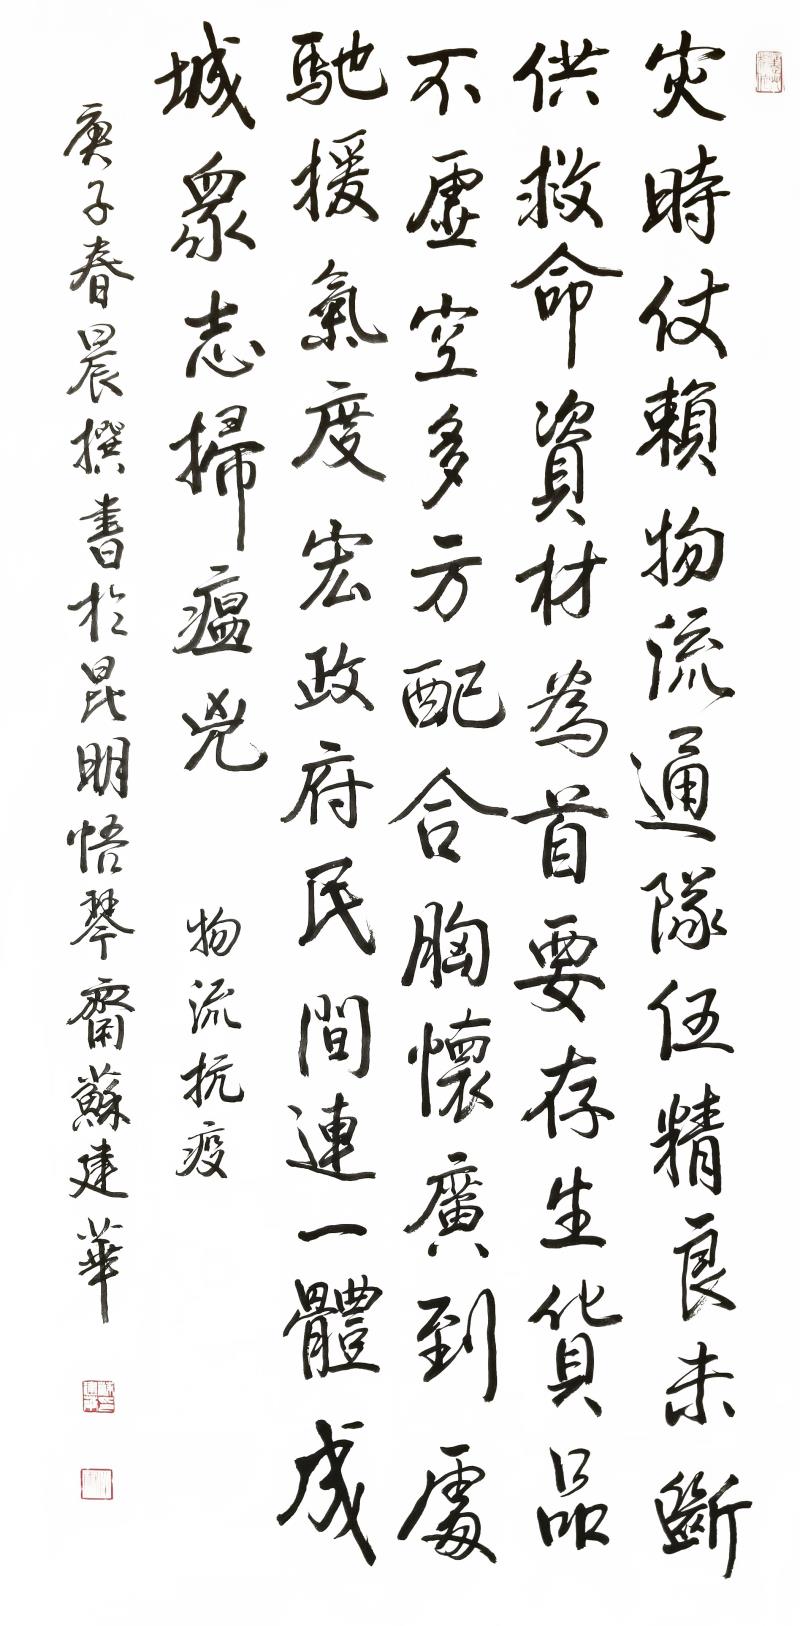 災時仗賴物流通隊伍精良未斷
供救命資材為首要存生貨品
不虛空多方配合胸懷廣到處
馳援氣度宏政府民間連一體成
城眾志掃瘟兇 物流抗疫
庚子春晨撰書於昆明悟琴齋蘇建華